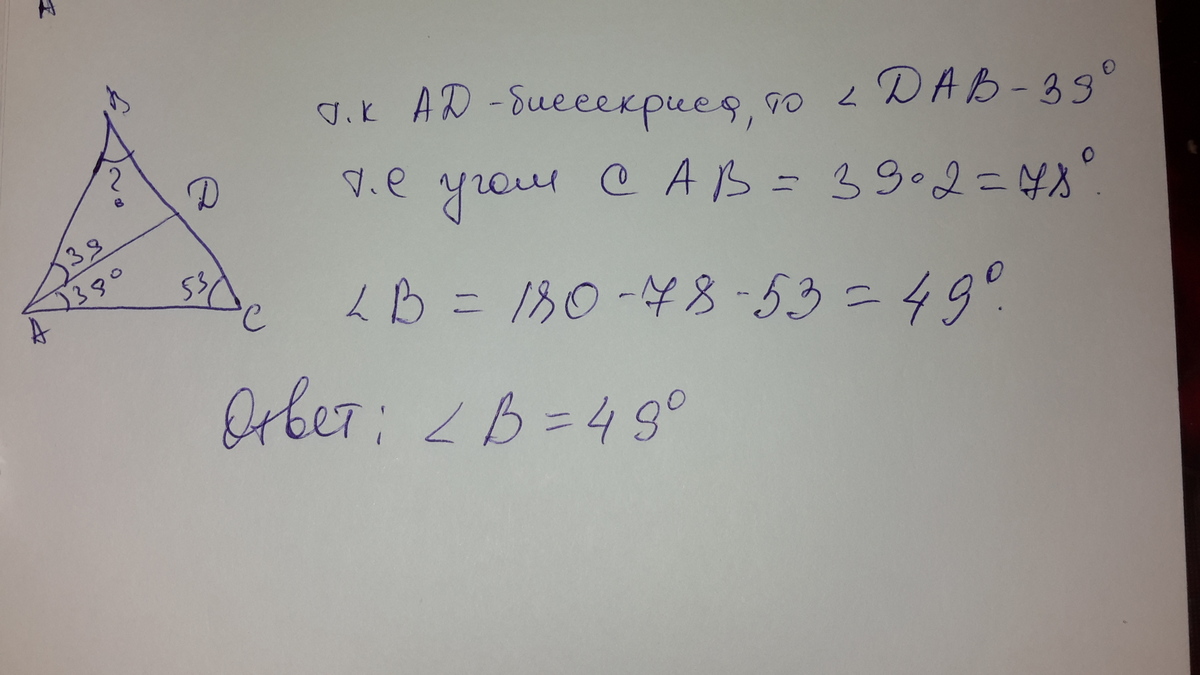 A
B
?
D
39
39°
53
A
C
т.к AD - биссекриса, то < DAB - 39°
т.е угол CAB = 39·2 = 78°.
< B = 180 - 78 - 53 = 49°.
Ответ: < B = 49°